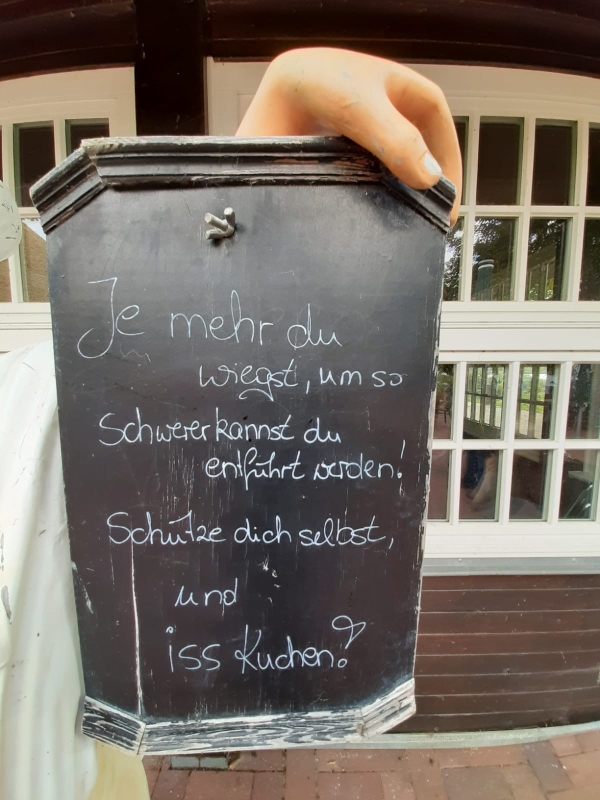 Je mehr du
wiegst, um so
schwerer kannst du
entführt werden!
Schütze dich selbst,
und
iss Kuchen!